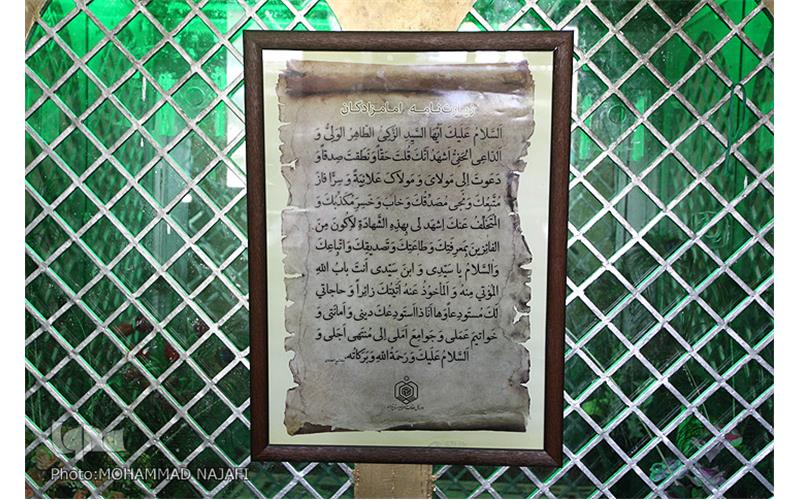 زیارت‌نامه امامزادگان
اَلسَّلامُ عَلَیْكَ اَیُّهَا السَّیِّدُ الزَّکِیُّ الطّاهِرُ الوَلِیُّ وَ
الدّاعِی الحَفِیُّ اَشهَدُ اَنَّكَ قُلتَ حَقّاً وَ نَطَقتَ صِدقاً وَ
دَعَوتَ اِلی مَولایَ وَ مَولاكَ عَلانِیَةً وَ سِرّاً فازَ
مُتَّبِعُكَ وَ نَجی مُصَدِّقُكَ وَ خابَ وَ خَسِرَ مُکَذِّبُكَ وَ
المُتَخَلِّفُ عَنكَ اِشهَد لی بِهذِهِ الشَّهادَةِ لِاَکُونَ مِنَ
الفائِزینَ بِمَعرِفَتِكَ وَ طاعَتِكَ وَ تَصدیقِكَ وَ اتِّباعِكَ
وَ السَّلامُ یا سَیِّدی وَ ابنَ سَیِّدی اَنتَ بابُ اللهِ
المُؤتی مِنهُ وَ المَأخُوذُ عَنهُ اَتَیتُكَ زائِراً وَ حاجاتی
لَكَ مُستَودِعاً وَ ها اَنَا ذا اَستَودِعُكَ دینی وَ اَمانَتی وَ
خَواتیمَ عَمَلی وَ جَوامِعَ اَمَلی اِلی مُنتَهی اَجَلی وَ
السَّلامُ عَلَیكَ وَ رَحمَةُ اللهِ وَ بَرَکاتُه.
iqna
Photo:MOHAMMAD NAJAFI